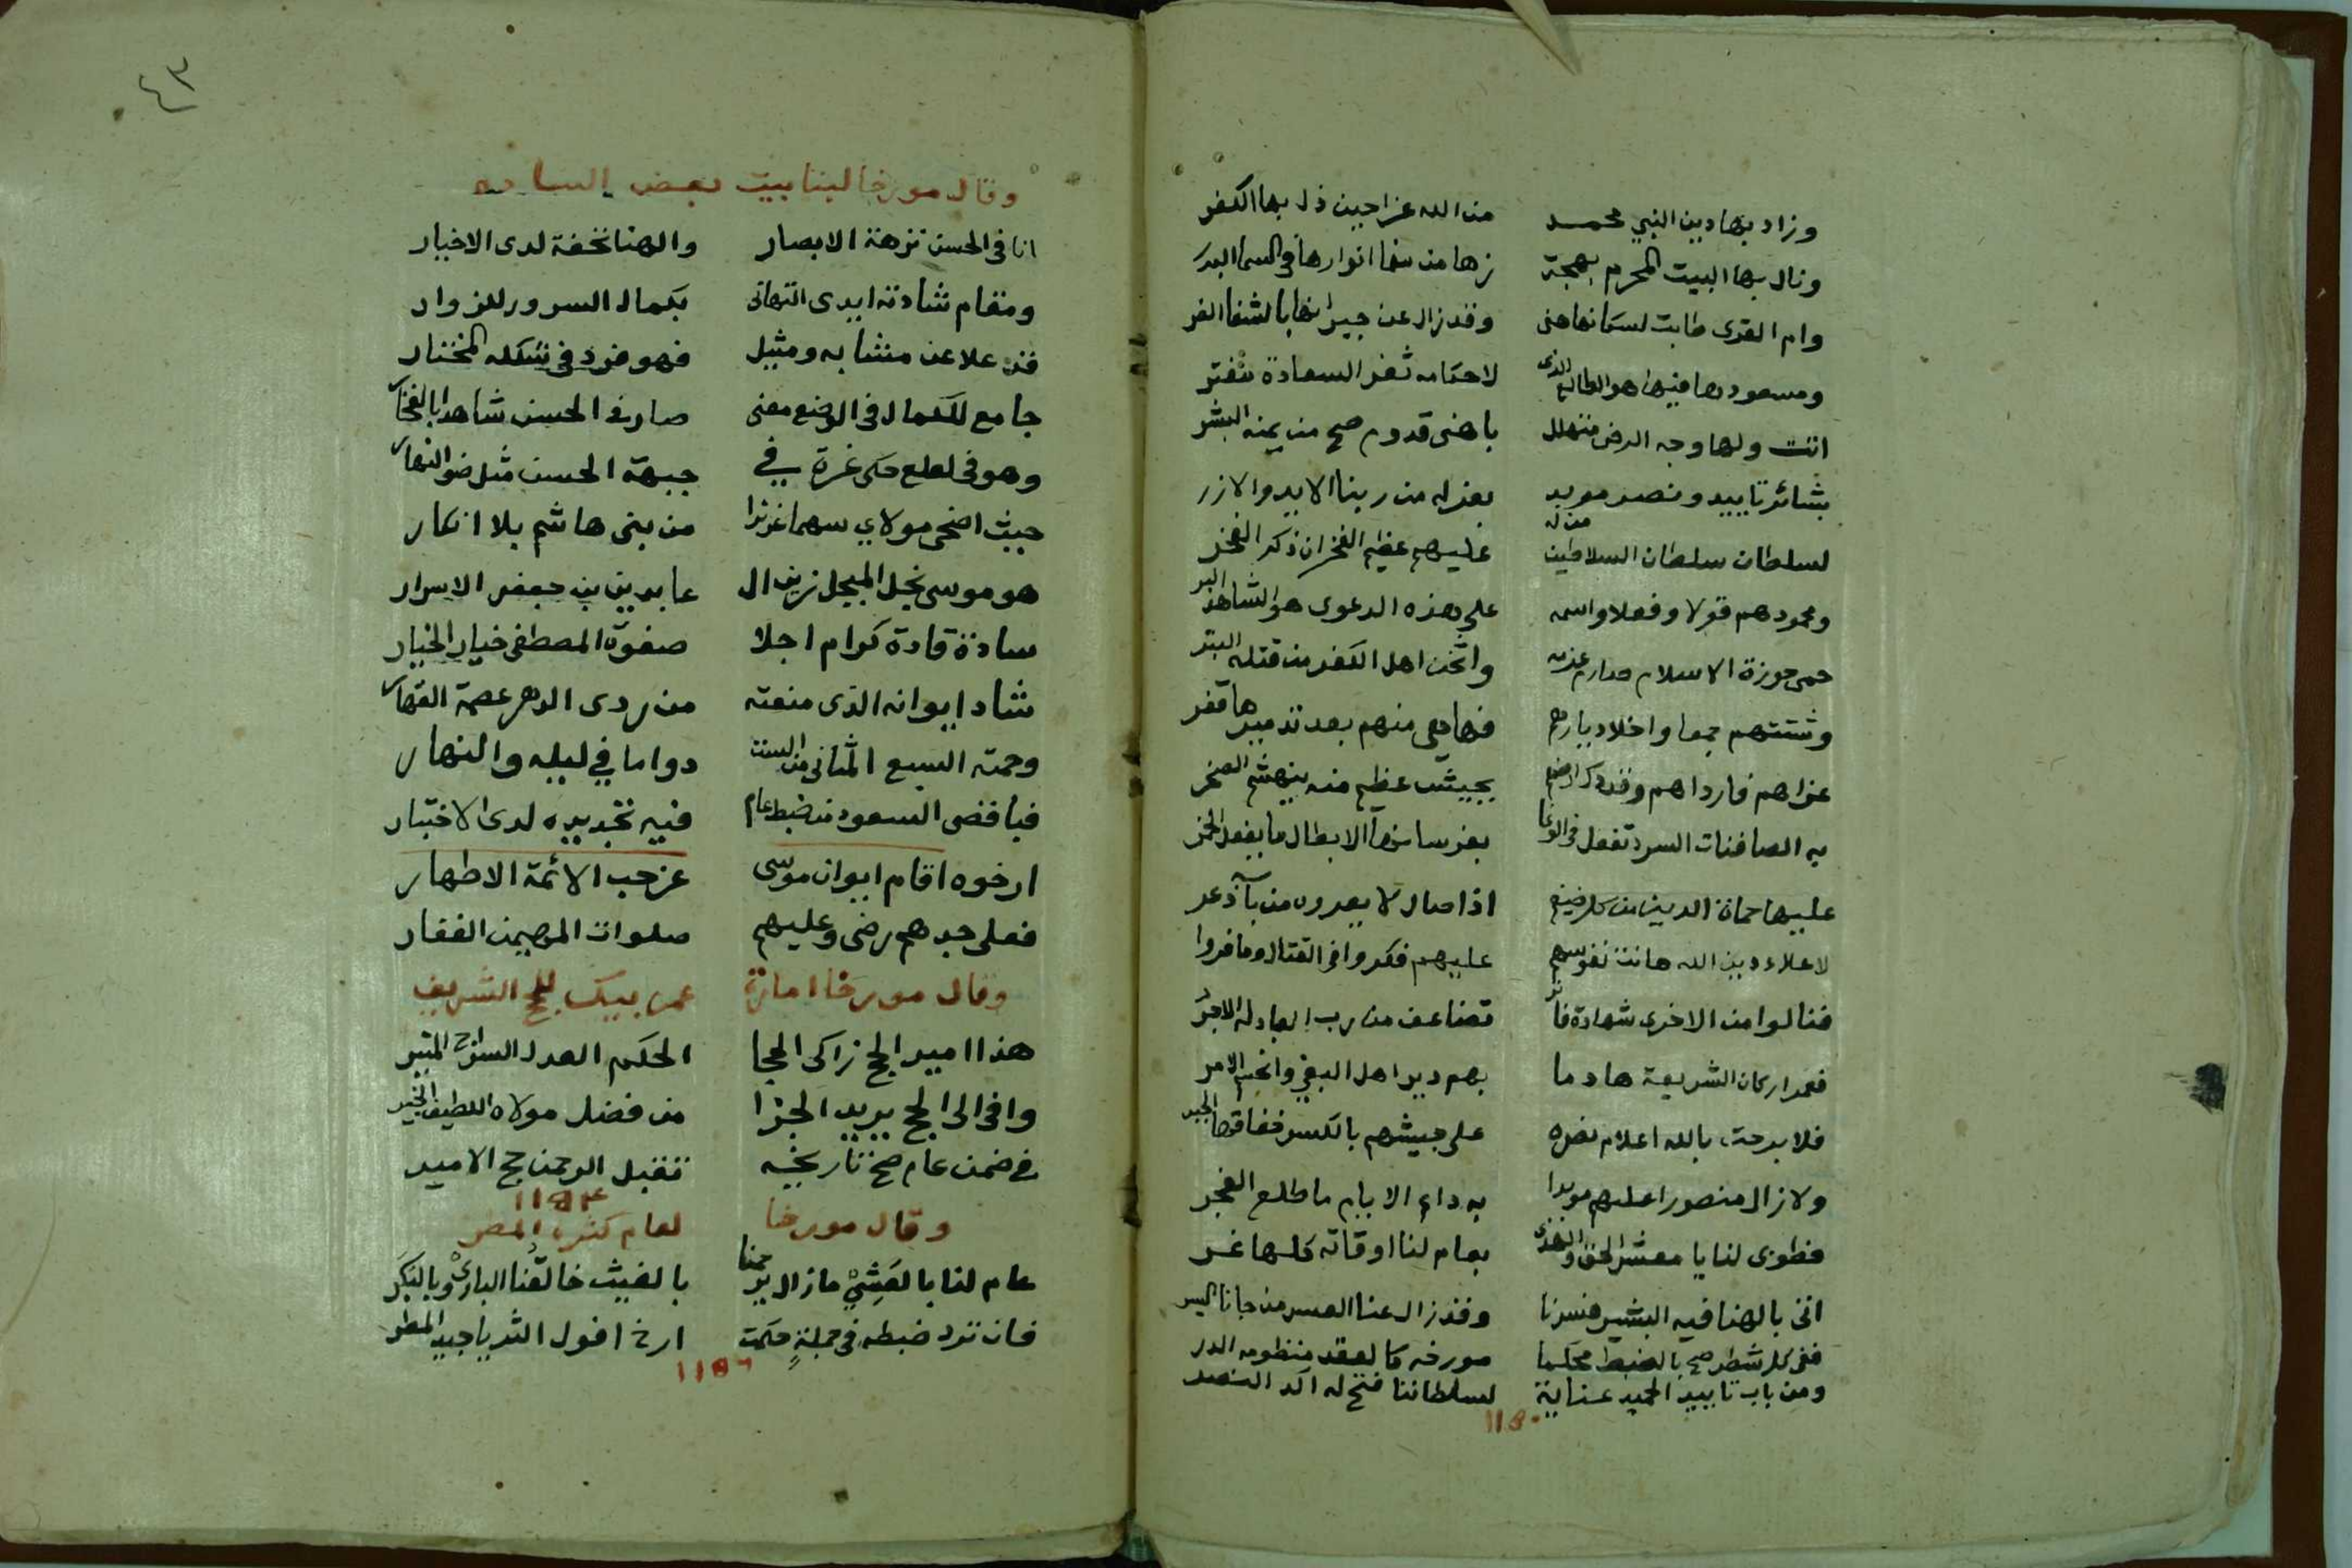 وزاد بها دين النبي محمد من الله عزا حين ذل بها الكفر
ونال بها البيت المحرم بهجة زها من سنا انوارها في السما البدر
وام القرى طابت لسكانها هنى وقد زال عن جيرانها بالشفا الضر
ومسعودها فيها هو الطالع الذى لاحكامه ثغر السعادة تفتر
اتت ولها وجه الرضى متهلل باهنى قدوم صح من يمنه البشر
بشائر تاييد ونصر مويد بعز له من ربنا الايد والازر
لسلطان سلطان السلاطين من له عليهم عظيم الفخر ان ذكر الفخر
ومحمودهم قولا وفعلا واسمه على هذه الدعوى هو الشاهد البر
حمى حوزة الاسلام صارم عزمه واثخن اهل الكفر من قتله البتر
وشتتهم جمعا واخلا ديارهم فها هى منهم بعد تدميرها قفر
غزاهم فارداهم وقد دك ارضهم بجيش عظيم منه ينهشم الصخر
به الصافنات السرد تفعل فى الوغا بفرسانها الابطال ما يفعل الخمر
عليها حماة الدين من كل ضيغم اذا صال لا يعروه من باذعر
لاعلاء دين الله هانت نفوسهم عليهم فكروا فى القتال وما فروا
فنالوا من الاخرى شهادة فائز تضاعف من رب العباد له الاجر
فعمر اركان الشريعة هادما بهم دير اهل البغى وانحتم الامر
فلا برحت بالله اعلام نصره على جيشهم بالكسر خفاقها الجبر
ولا زال منصورا عليهم مويدا به دايم الايام ما طلع الفجر
فطوبى لنا يا معشر الحق والهدى بعام لنا اوقاته كلها غر
اتى بالهنا فيه البشير فسرنا وقد زال عنا العسر مذ جانا اليسر
ففى كل شطر صح بالضبط محكما مورخه كالعقد منظومه الدر
ومن باب تاييد الحميد عناية لسلطاننا فتح له اكد النصر
٤٣
وقال مورخا لبنا بيت بعض الساده
انا فى الحسن نزهة الابصار والهنا تحفة لدى الاخيار
ومقام شادته ايدى التهانى بكمال السرور للزوار
قد علا عن مشابه ومثيل فهو فرد فى شكله المختار
جامع للكمال فى الوضع معنى صار فى الحسن شاهدا بالفخار
وهو فى لعلع حكى غرة في جبهة الحسن مثل ضو النهار
حيث اضحى مولاي سهما عزيزا من بنى هاشم بلا انكار
هو موسى نجل المبجل زين ال عابدين بن جعفر الاسرار
سادة قادة كرام اجلا صفوة المصطفى خيار الخيار
شاد ايوانه الذى منعته من ردى الدهر عصمة القهار
وحمته السبع المثانى من الست دواما في ليله والنهار
فباقصى السعود من ضبط عام فيه تجديده لدى الاختبار
ارخوه اقام ايوان موسى عز حب الائمة الاطهار
فعلى جدهم رضى وعليهم صلوات المهيمن الغفار
وقال مورخا امارة عمر بيك للحج الشريف
هذا امير الحج زاكى الحجا الحكم العدل السراج المنير
وافى الى الحج يريد الجزا من فضل مولاه اللطيف الخبير
في ضمن عام صح تاريخه تقبل الرحمن حج الامير
وقال مورخا لعام كثرة المطر
عام لنا بالعشي ما زال يرحمنا بالغيث خالقنا البارئ وبالبكر
فان ترد ضبطه فى جملة حكمت ارخ افول الثريا جيد المطر